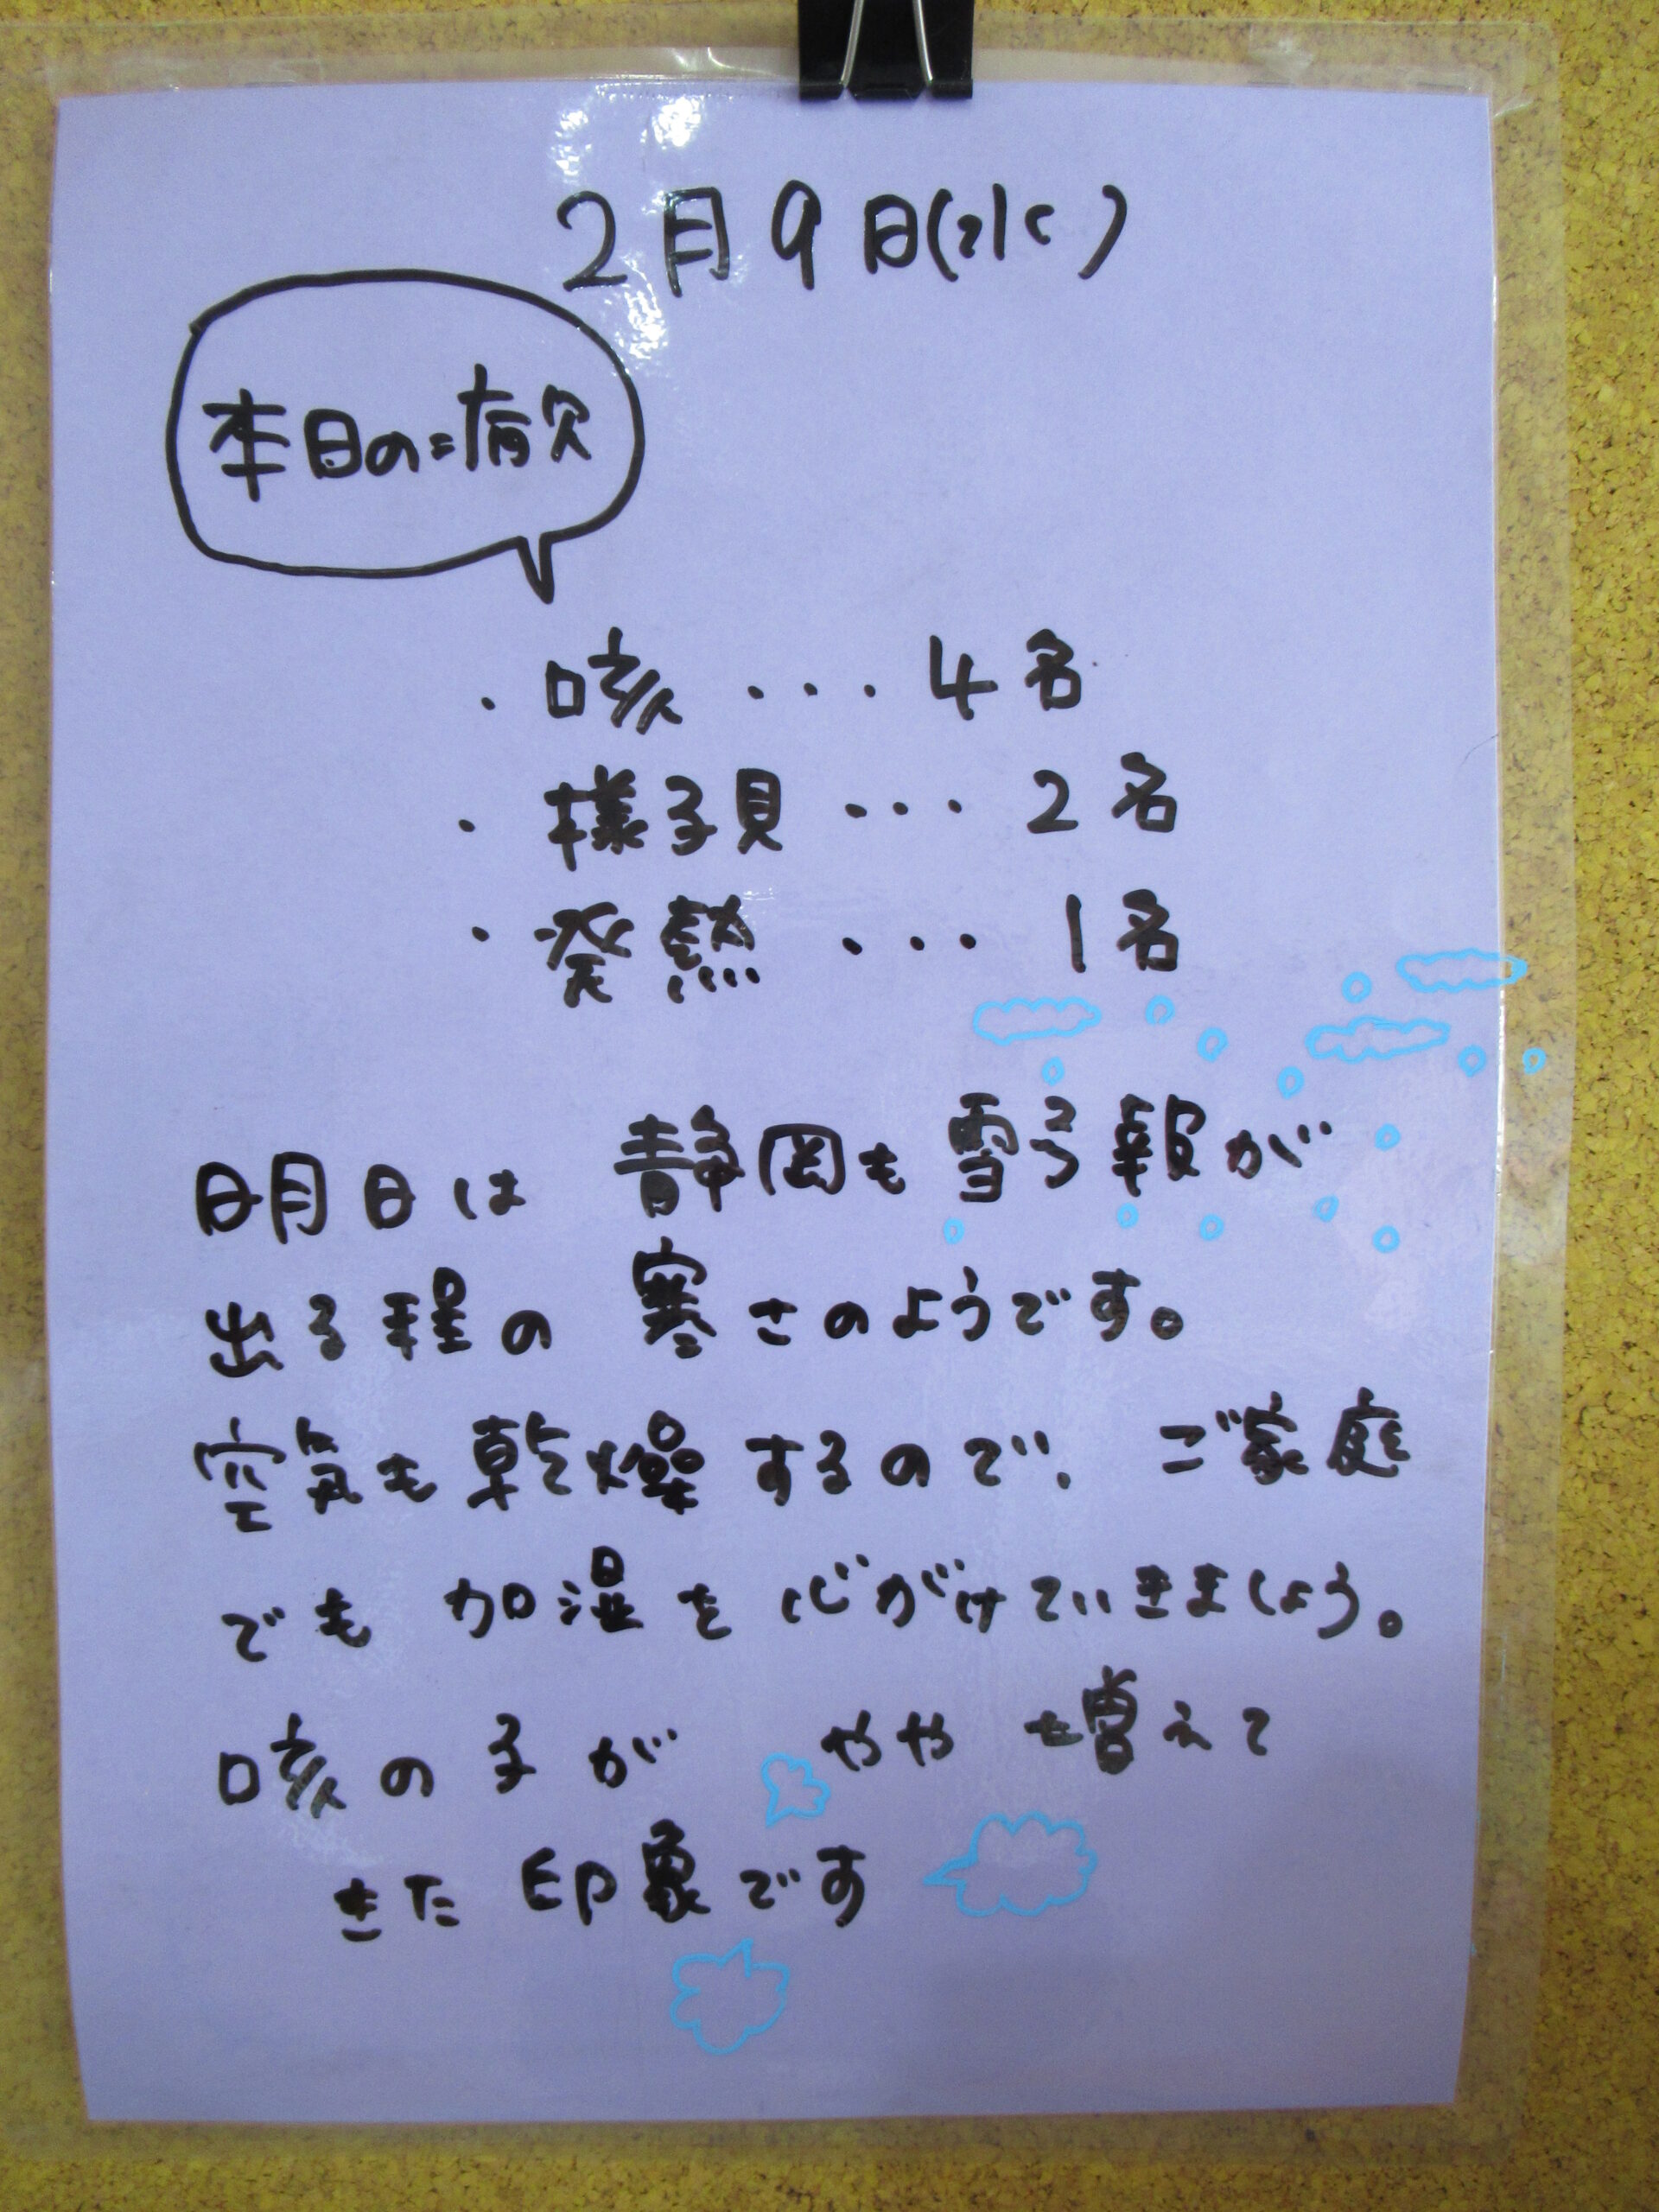 2月9日(水)
本日の病欠
・咳 ・・・ 4名
・様子見 ・・・ 2名
・発熱 ・・・ 1名
明日は 静岡も雪予報が
出る程の 寒さのようです。
空気も乾燥するので、ご家庭
でも 加湿を 心がけていきましょう。
咳の子が やや 増えて
きた 印象です